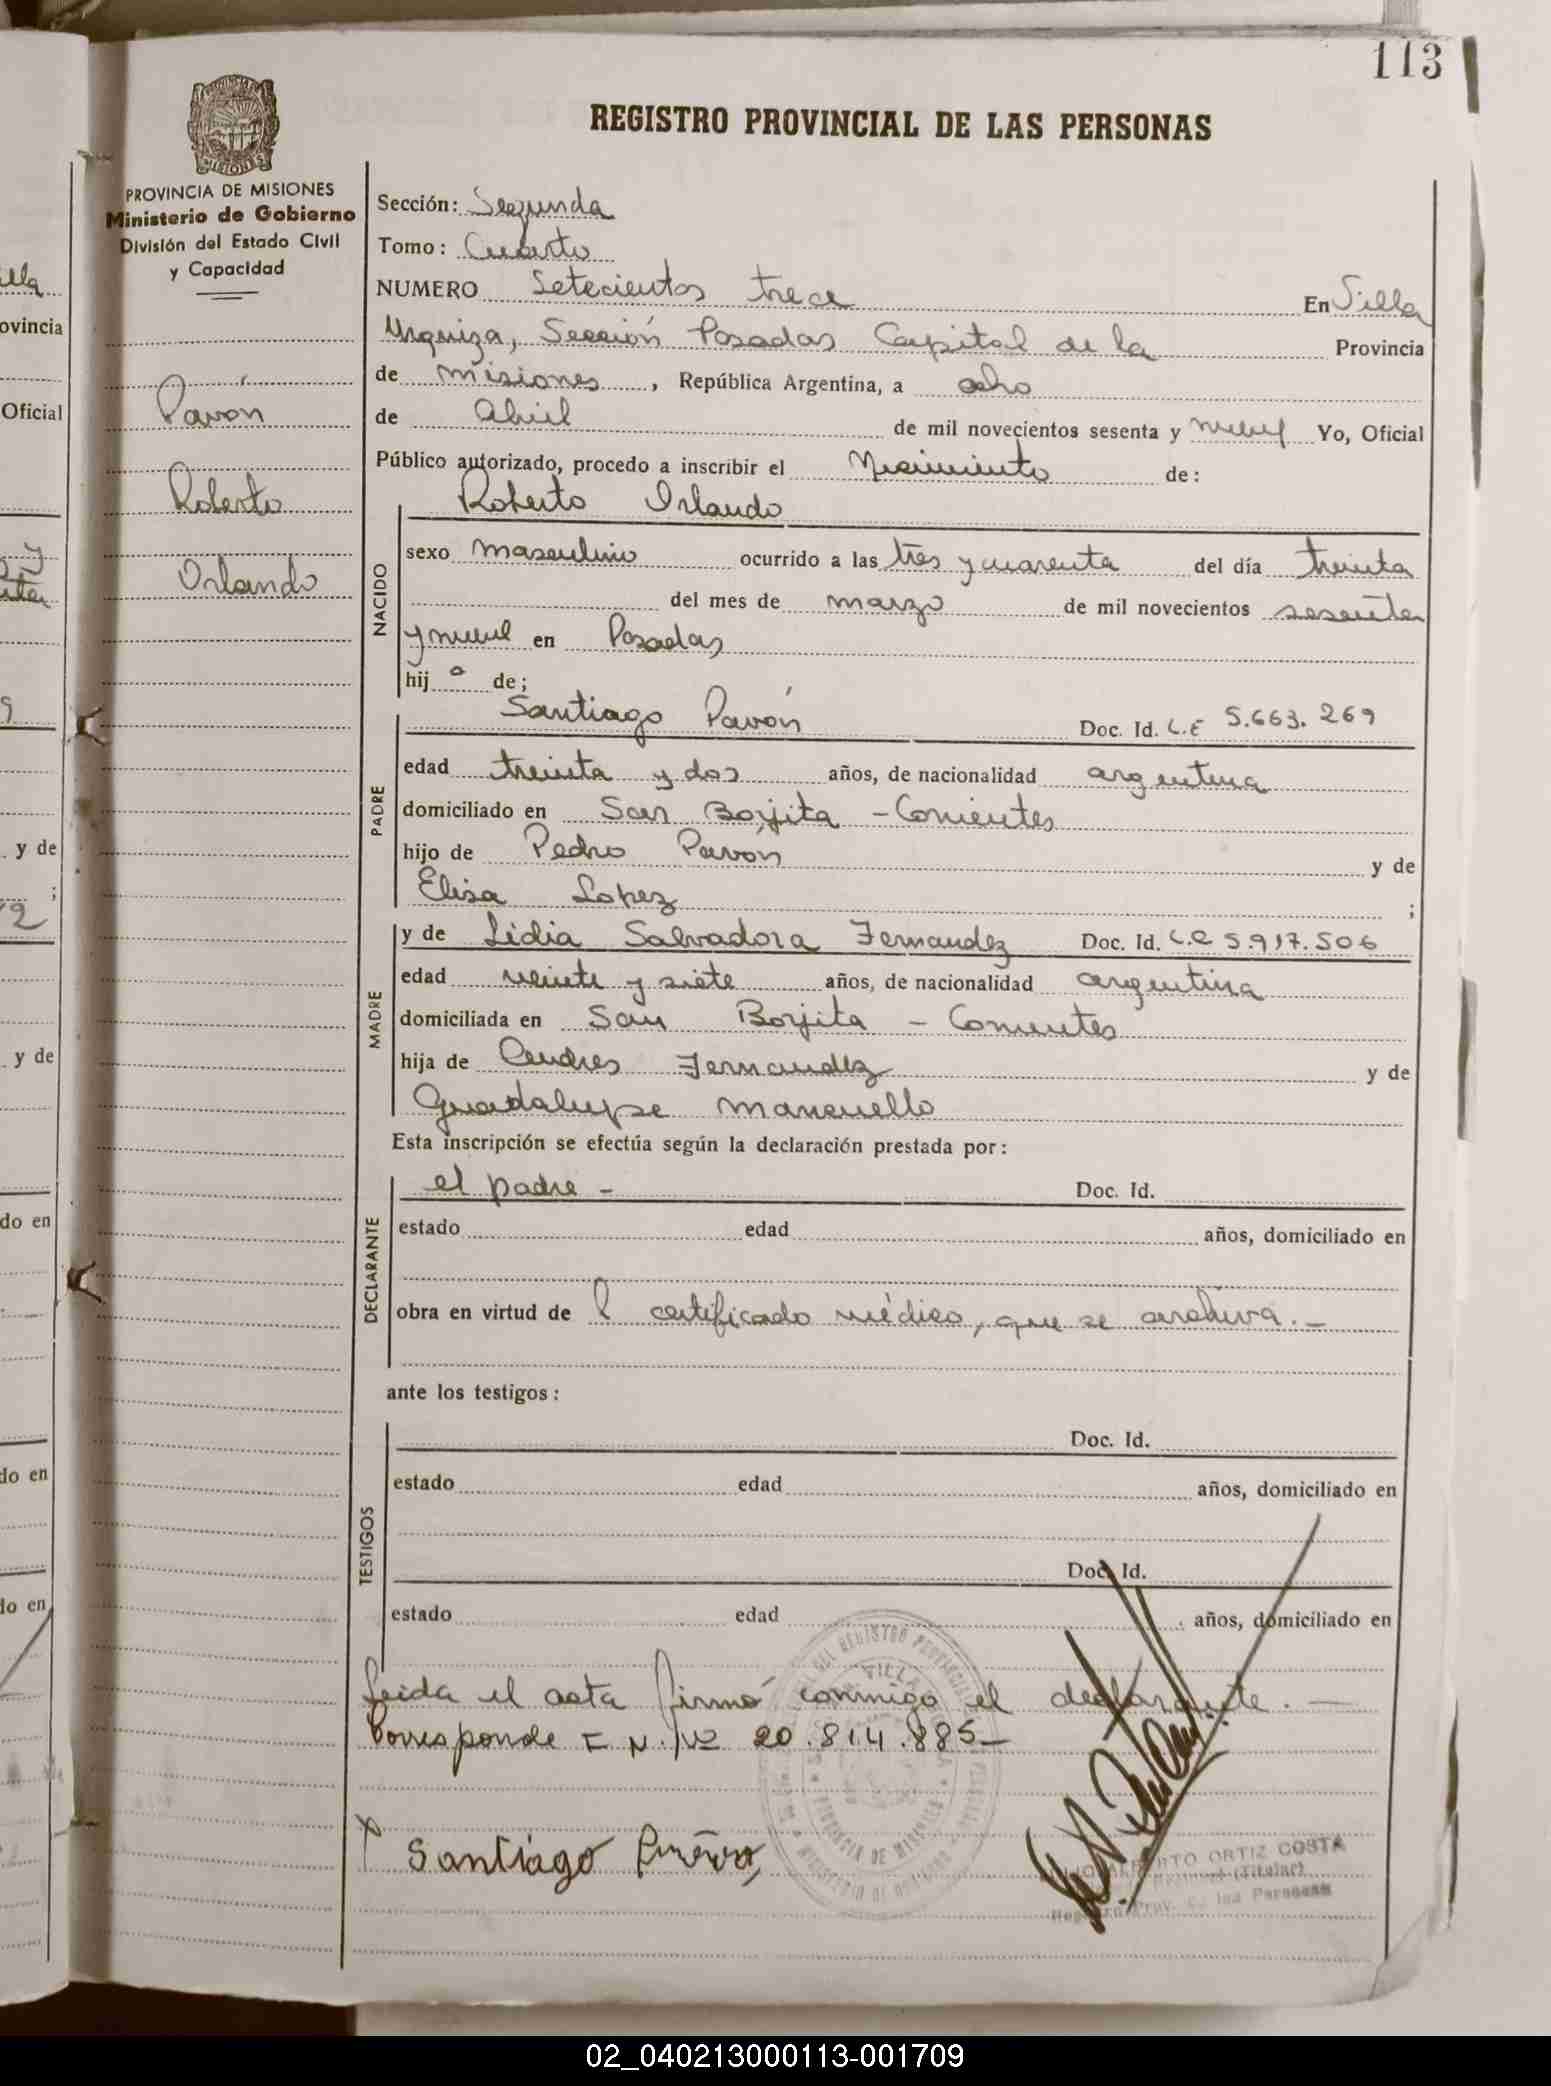 113
REGISTRO PROVINCIAL DE LAS PERSONAS
PROVINCIA DE MISIONES
Ministerio de Gobierno
División del Estado Civil
y Capacidad
Pavón
Roberto
Orlando
Sección: Segunda
Tomo: Cuarto
NUMERO Setecientos trece En Villa
Urquiza, Sección Posadas Capital de la Provincia
de Misiones, República Argentina, a ocho
de Abril de mil novecientos sesenta y nueve Yo, Oficial
Público autorizado, procedo a inscribir el Nacimiento de:
Roberto Orlando
NACIDO
sexo masculino ocurrido a las tres y cuarenta del día treinta
del mes de marzo de mil novecientos sesenta
y nueve en Posadas
hij o de;
Santiago Pavón Doc. Id. L.E 5.663.269
PADRE
edad treinta y dos años, de nacionalidad argentina
domiciliado en San Borjita - Corrientes
hijo de Pedro Pavón y de
Elisa Lopez ;
y de Lidia Salvadora Fernandez Doc. Id. L.C 5.917.506
MADRE
edad veinte y siete años, de nacionalidad argentina
domiciliada en San Borjita - Corrientes
hija de Andres Fernandez y de
Guadalupe Mancuello
Esta inscripción se efectúa según la declaración prestada por:
el padre - Doc. Id.
DECLARANTE
estado edad años, domiciliado en
obra en virtud de l certificado médico, que se archiva.-
ante los testigos:
Doc. Id.
TESTIGOS
estado edad años, domiciliado en
Doc. Id.
estado edad años, domiciliado en
Leida el acta firmó conmigo el declarante.-
Corresponde I.N. Nº 20.814.885-
Santiago
ORTIZ COSTA
(Titular)
02_040213000113-001709